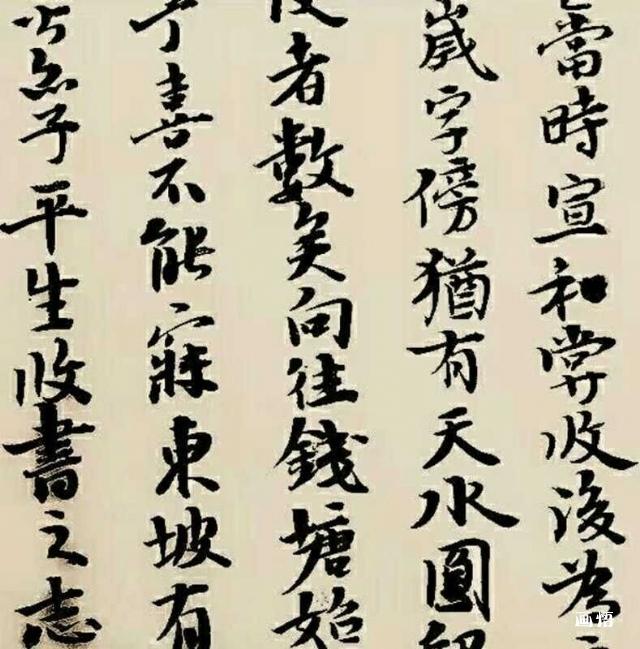 當時宣和嘗收後為
歲字傍猶有天水圓
者數矣向往錢塘始
喜不能寐東坡有
平生收書之志
画悟